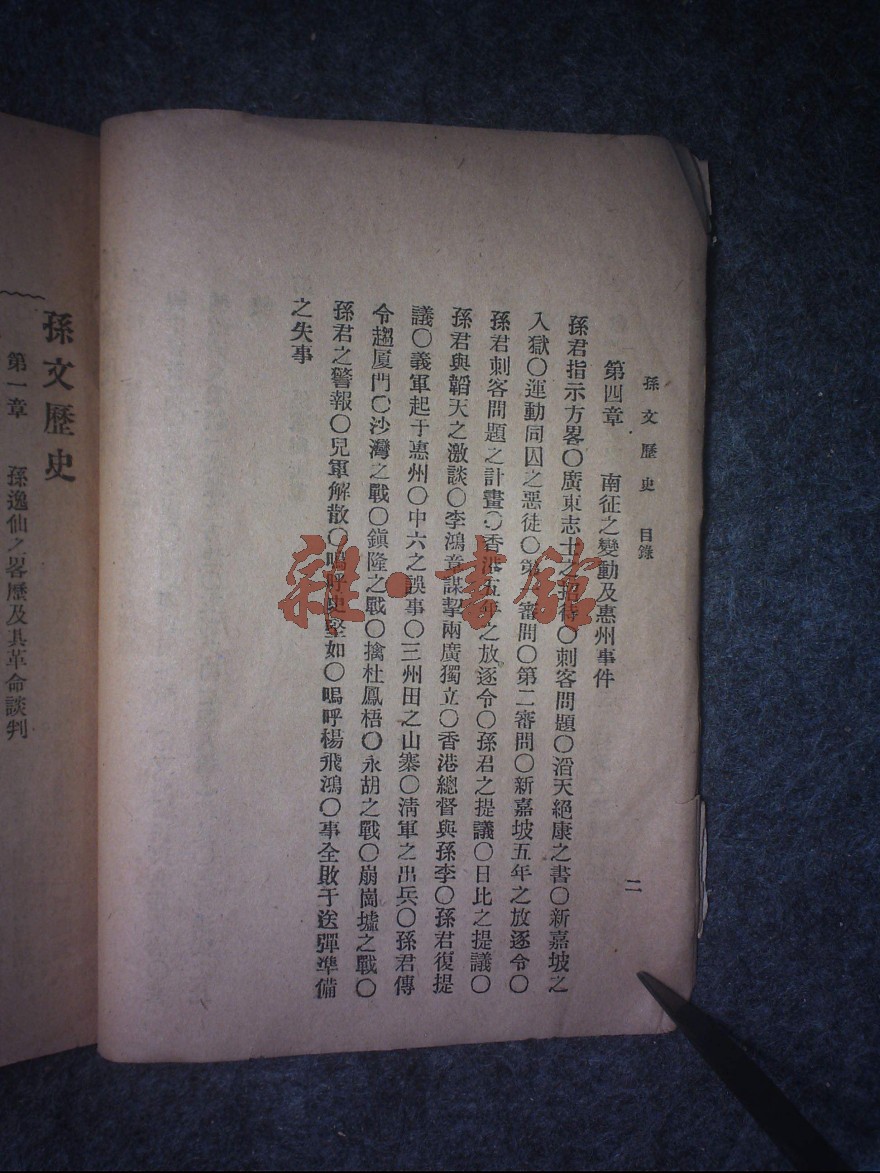 孫文歷史 目錄
二
第四章 南征之變動及惠州事件
孫君指示方畧〇廣東志士之招待〇刺客問題〇滔天絕康之書〇新嘉坡之
入獄〇運動同囚之惡徒〇第一審問〇第二審問〇新嘉坡五年之放逐令〇
孫君刺客問題之計畫〇香港五年之放逐令〇孫君之提議〇日比之提議〇
孫君與韜天之激談〇李鴻章謀挈兩廣獨立〇香港總督與孫李〇孫君復提
議〇義軍起于惠州〇中六之誤事〇三州田之山寨〇淸軍之出兵〇孫君傳
令趨厦門〇沙灣之戰〇鎭隆之戰〇擒杜鳳梧〇永胡之戰〇崩崗墟之戰〇
孫君之警報〇兒軍解散〇嗚呼史堅如〇嗚呼楊飛鴻〇事全敗于送彈準備
之失事
孫文歷史
第一章 孫逸仙之畧歷及其革命談判
雜·書館